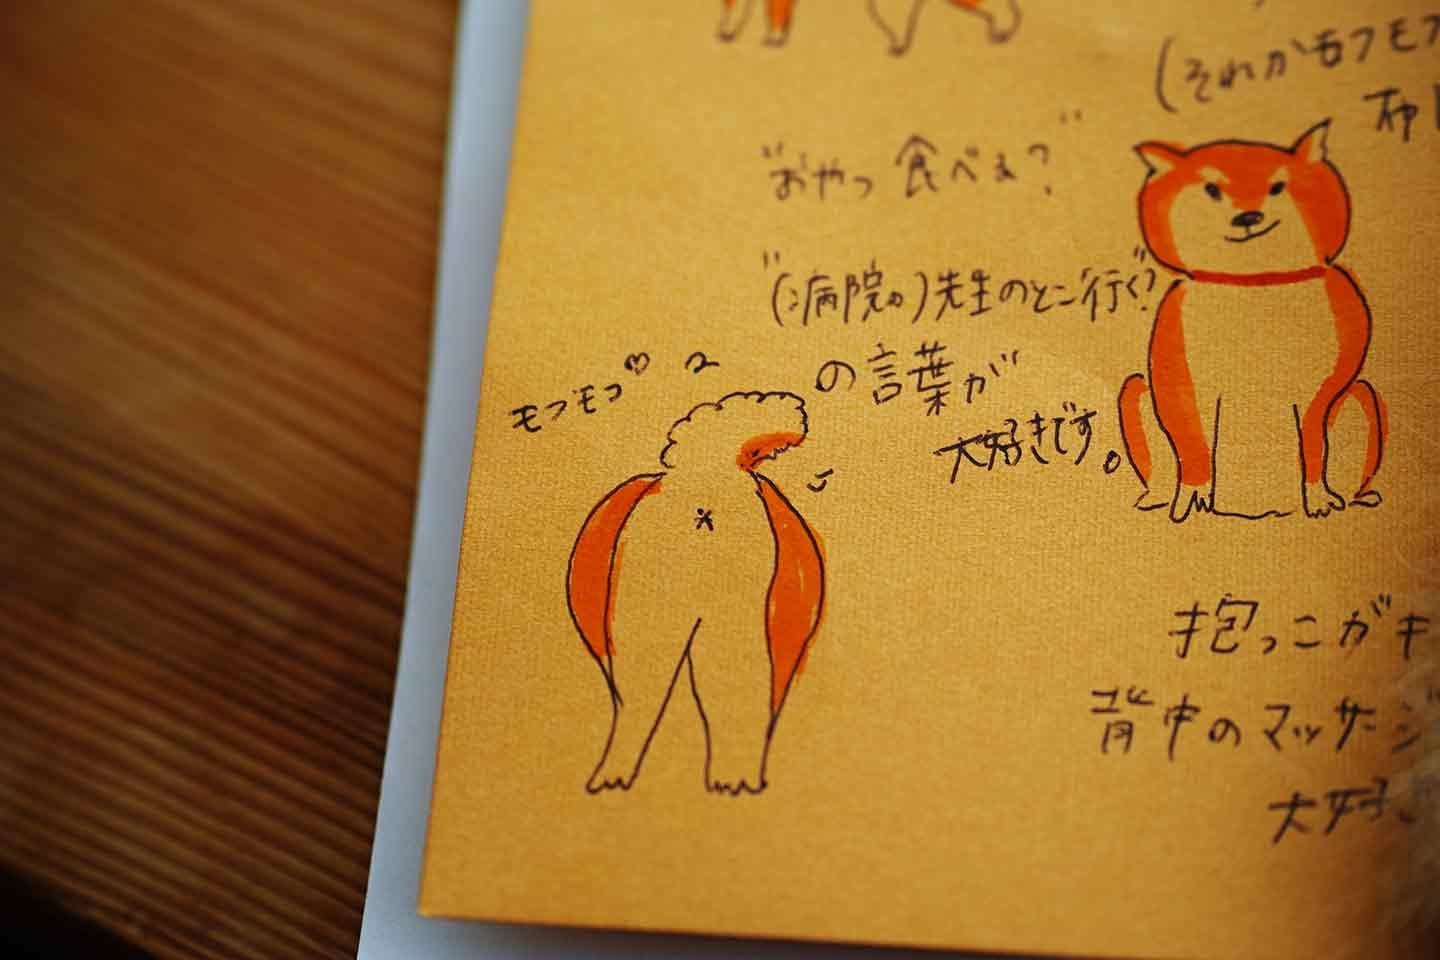 (それかモフモフ
布
"おやつ食べる?"
"(病院の)先生のとこ行く?"
の言葉が
大好きです。
モフモフ♡
抱っこがキ
背中のマッサージ
大好き